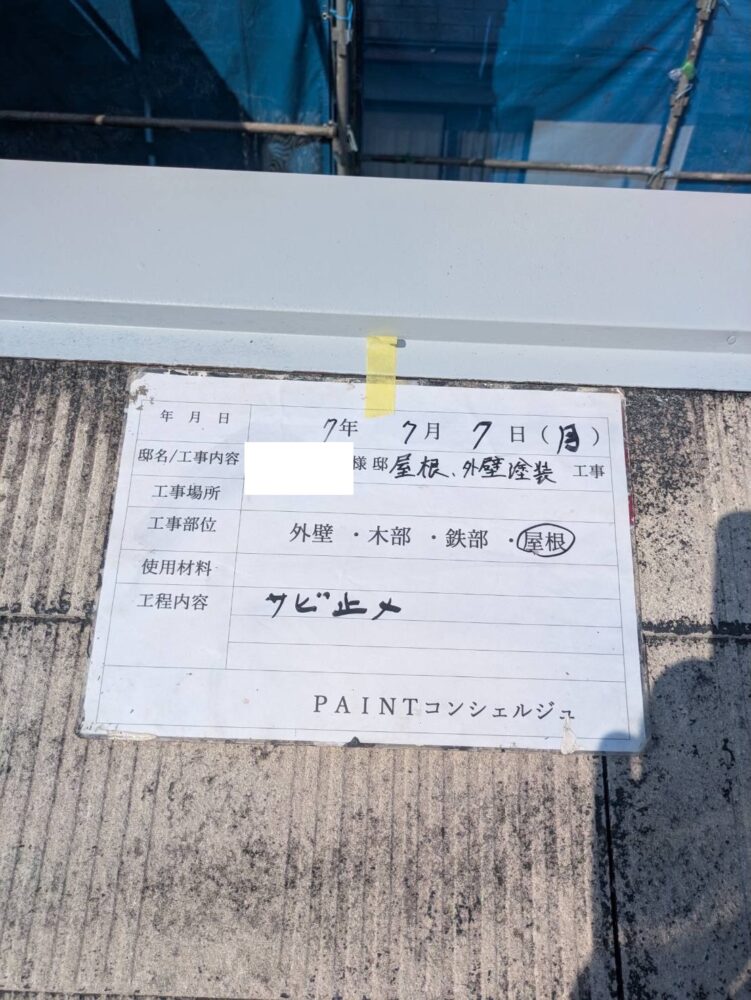 年 月 日 7年 7月 7日(月)
邸名/工事内容 様 邸 屋根、外壁塗装 工事
工事場所
工事部位 外壁 ・木部 ・鉄部 ・屋根
使用材料
工程内容 サビ止メ
PAINTコンシェルジュ